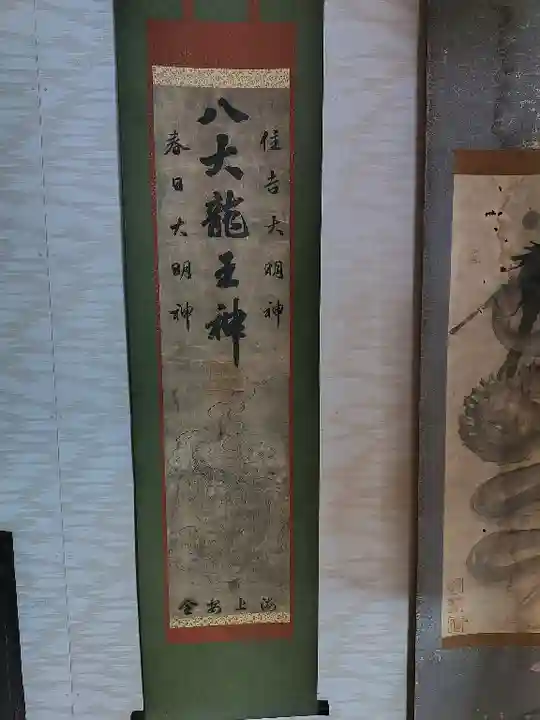 住吉大明神
八大龍王神
春日大明神
海上安全